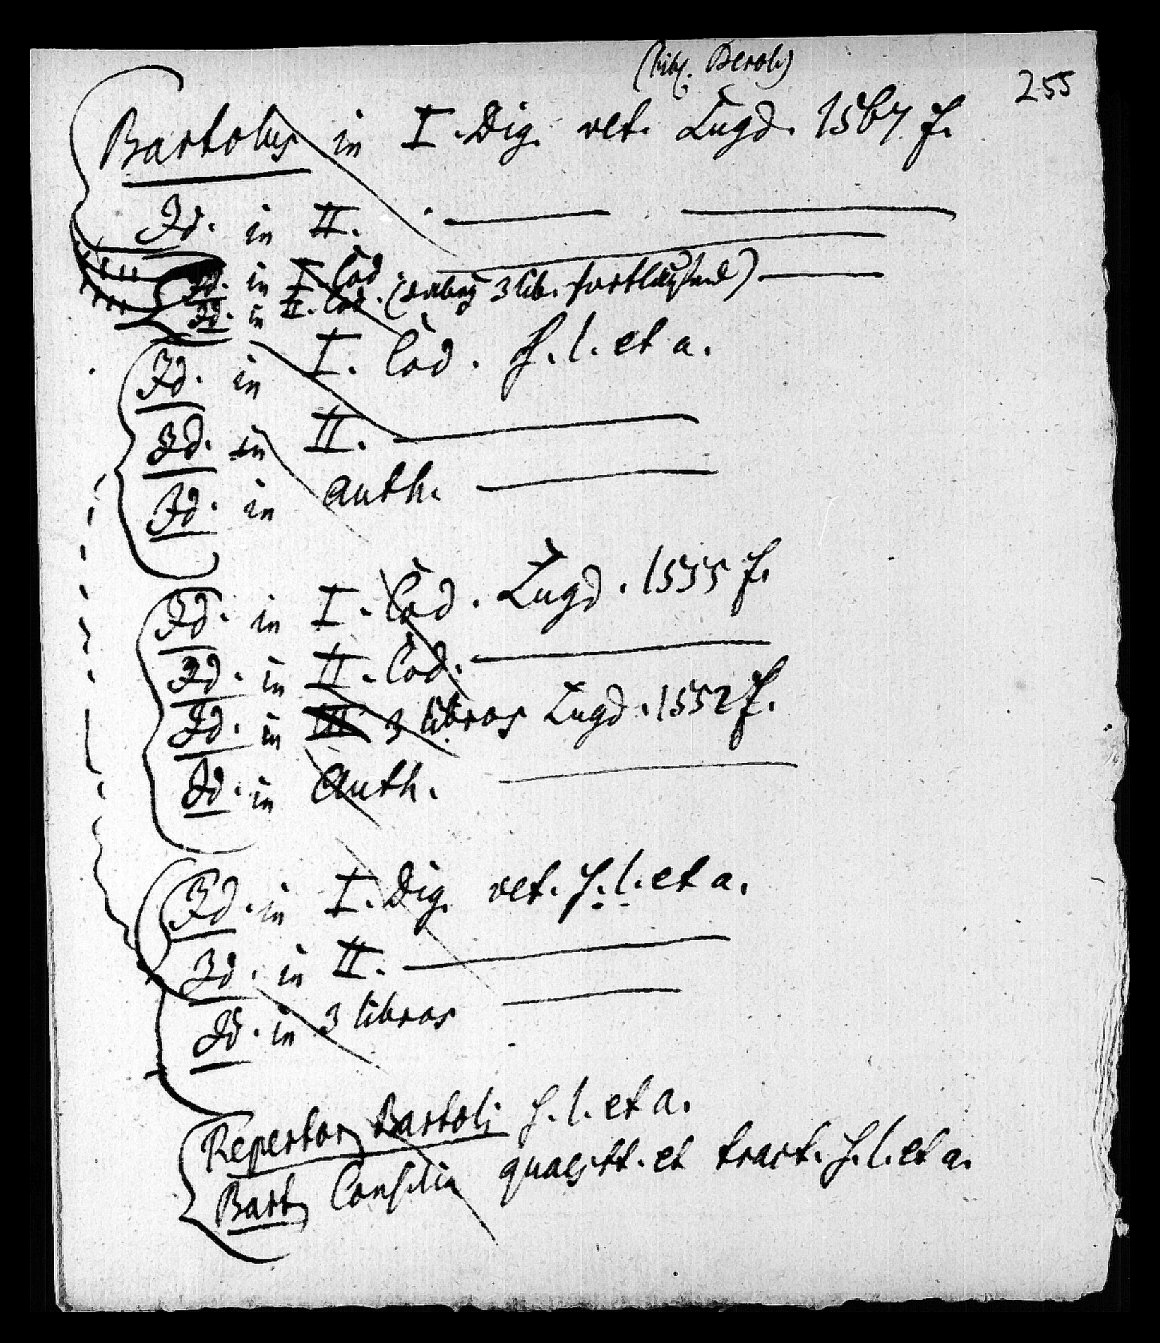 (bibl. Berol.)
255
Bartolus in I. Dig. vet. Lugd. 1567 f.
Id. in II. ——— ———
Id. in I. Cod. ———
Id. in II. Cod. (dabey 3 lib. fortlaufend) ———
Id. in I. Cod. s. l. et a.
Id. in II. ———
Id. in Auth. ———
Id. in I. Cod. Lugd. 1555 f.
Id. in II. Cod. ———
Id. in 3 libros Lugd. 1552 f.
Id. in Auth. ———
Id. in I. Dig. vet. s. l. et a.
Id. in II. ———
Id. in 3 libros ———
Repertor. Bartoli s. l. et a.
Bart. Consilia quaestt. et tract. s. l. et a.